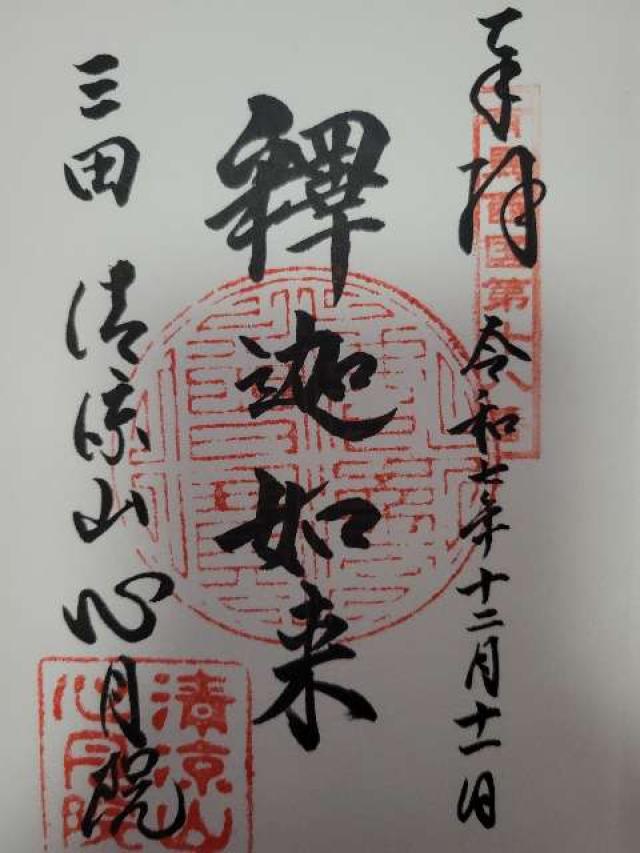 奉拝
令和七年十二月十一日
釋迦如来
三田 清涼山心月院
清涼山
心月院